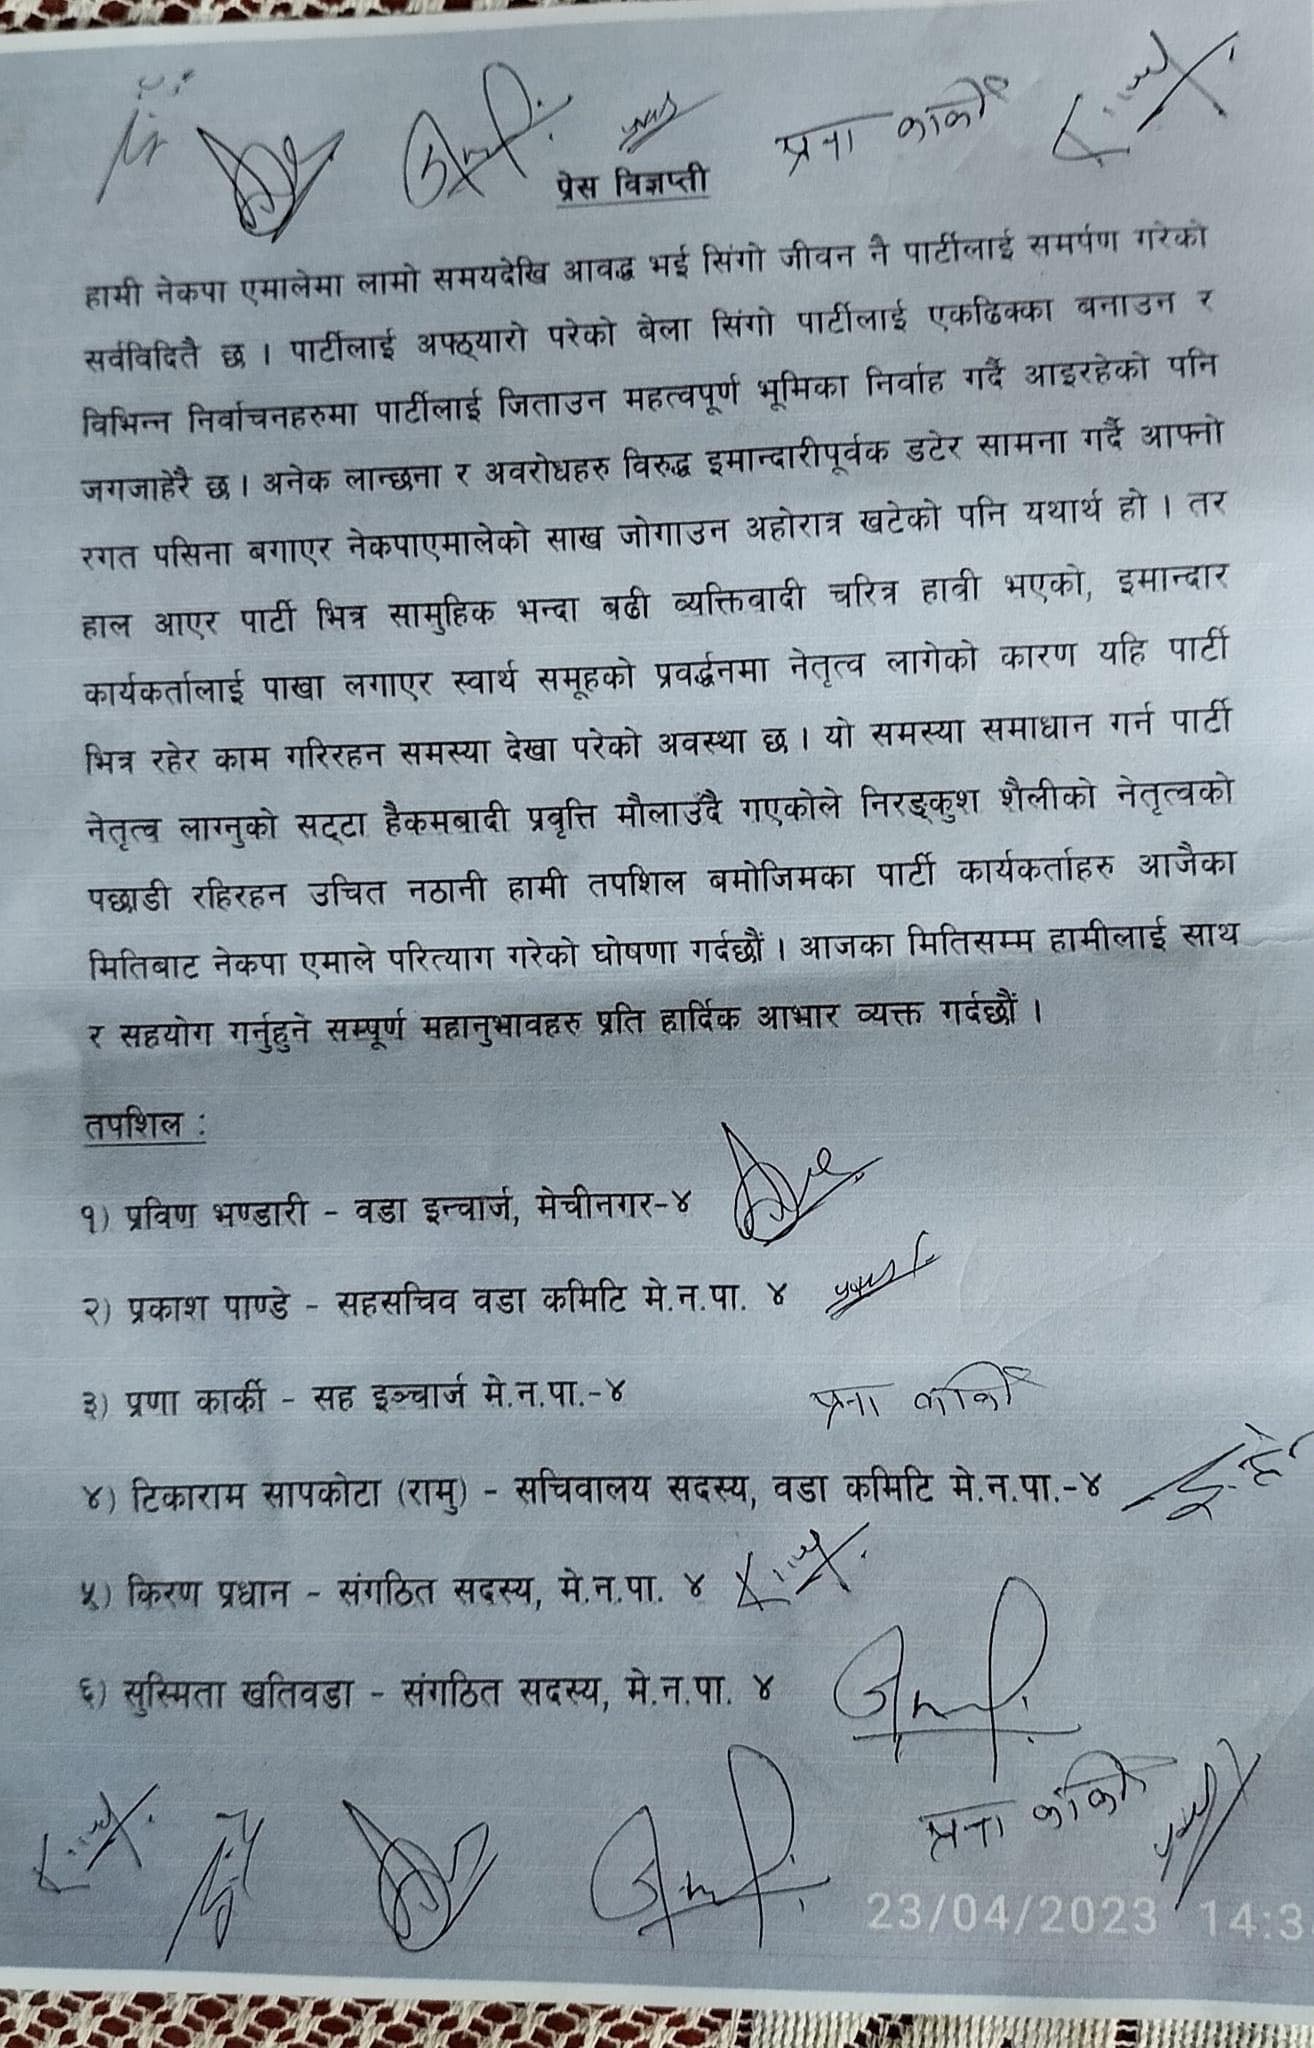 प्रना कार्की
प्रेस विज्ञप्ती
हामी नेकपा एमालेमा लामो समयदेखि आवद्ध भई सिंगो जीवन नै पार्टीलाई समर्पण गरेको
सर्वविदितै छ । पार्टीलाई अफ्ठ्यारो परेको बेला सिंगो पार्टीलाई एकढिक्का बनाउन र
विभिन्न निर्वाचनहरुमा पार्टीलाई जिताउन महत्वपूर्ण भूमिका निर्वाह गर्दै आइरहेको पनि
जगजाहेरै छ । अनेक लान्छना र अवरोधहरु विरुद्ध इमान्दारीपूर्वक डटेर सामना गर्दै आफ्नो
रगत पसिना बगाएर नेकपाएमालेको साख जोगाउन अहोरात्र खटेको पनि यथार्थ हो । तर
हाल आएर पार्टी भित्र सामुहिक भन्दा बढी व्यक्तिवादी चरित्र हावी भएको, इमान्दार
कार्यकर्तालाई पाखा लगाएर स्वार्थ समूहको प्रवर्द्धनमा नेतृत्व लागेको कारण यहि पार्टी
भित्र रहेर काम गरिरहन समस्या देखा परेको अवस्था छ । यो समस्या समाधान गर्न पार्टी
नेतृत्व लाग्नुको सट्टा हैकमबादी प्रवृत्ति मौलाउँदै गएकोले निरङ्कुश शैलीको नेतृत्वको
पछाडी रहिरहन उचित नठानी हामी तपशिल बमोजिमका पार्टी कार्यकर्ताहरु आजैका
मितिबाट नेकपा एमाले परित्याग गरेको घोषणा गर्दछौं । आजका मितिसम्म हामीलाई साथ
र सहयोग गर्नुहुने सम्पूर्ण महानुभावहरु प्रति हार्दिक आभार व्यक्त गर्दछौं ।
तपशिल :
१) प्रविण भण्डारी - वडा इन्चार्ज, मेचीनगर-४
२) प्रकाश पाण्डे - सहसचिव वडा कमिटि मे.न.पा. ४
३) प्रणा कार्की - सह इञ्चार्ज मे.न.पा.-४ प्रना कार्की
४) टिकाराम सापकोटा (रामु) - सचिवालय सदस्य, वडा कमिटि मे.न.पा.-४
५) किरण प्रधान - संगठित सदस्य, मे.न.पा. ४
६) सुस्मिता खतिवडा - संगठित सदस्य, मे.न.पा. ४
प्रना कार्की
23/04/2023 14:3